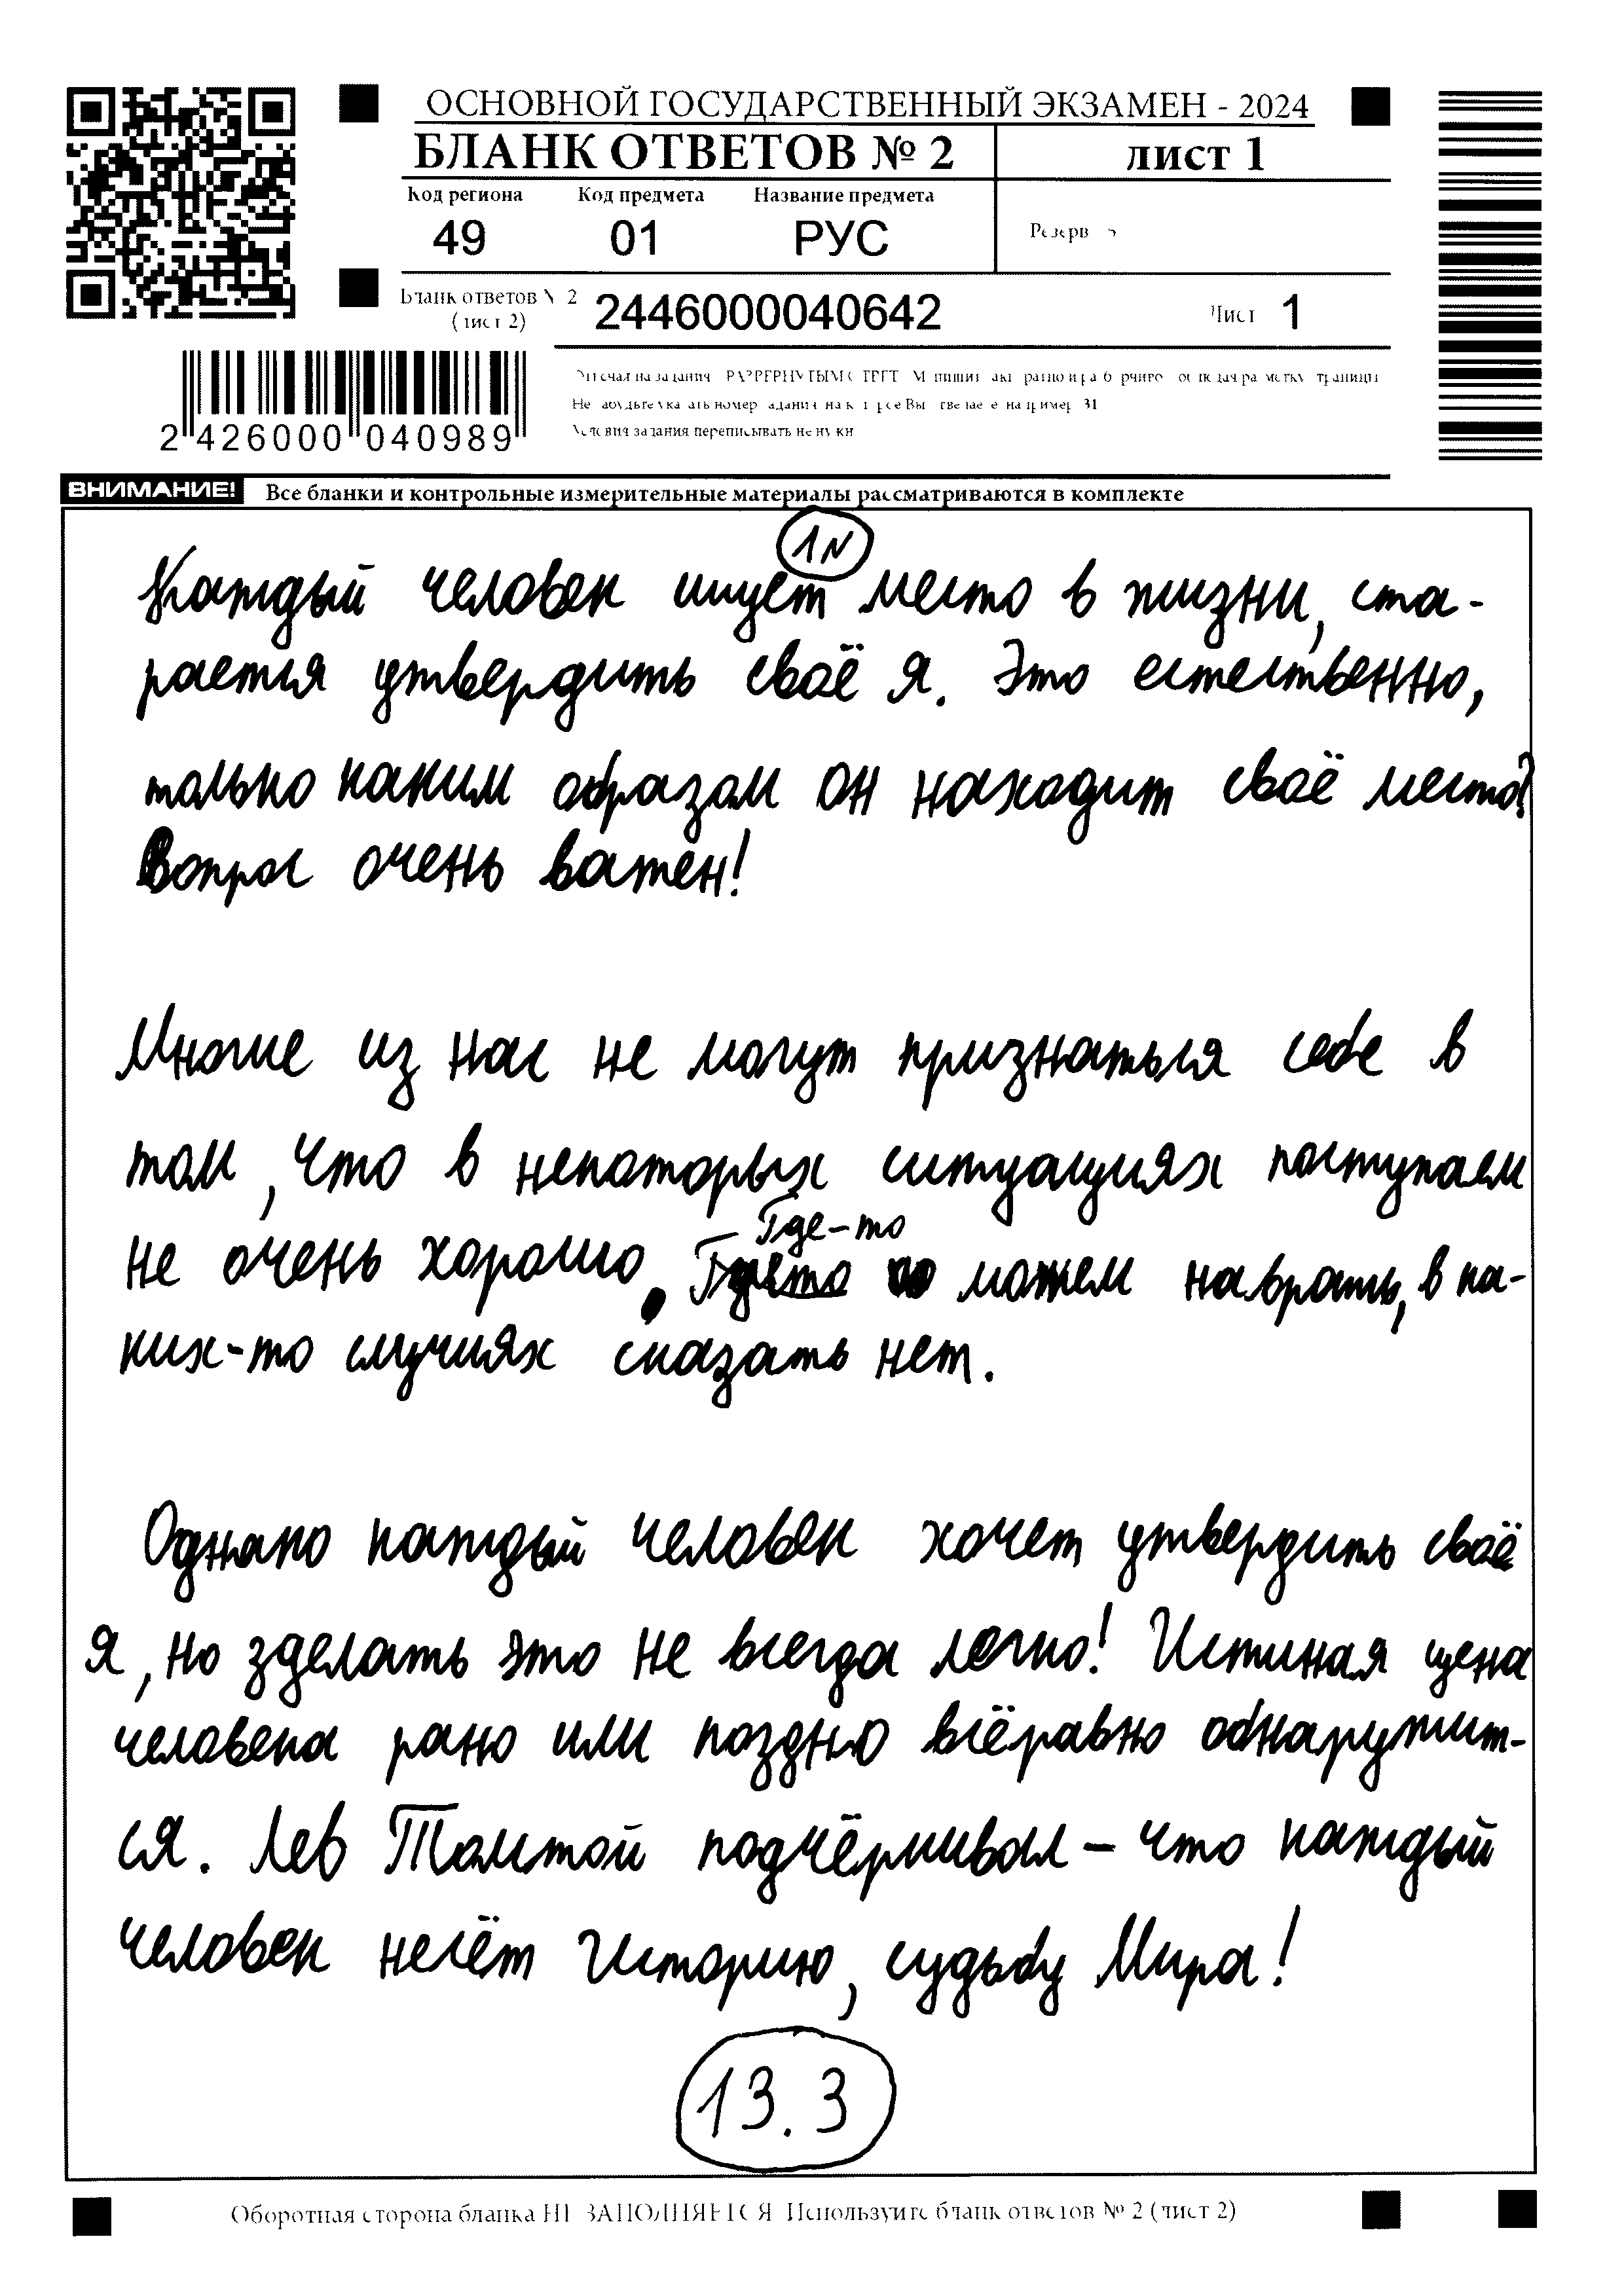 ОСНОВНОЙ ГОСУДАРСТВЕННЫЙ ЭКЗАМЕН - 2024
БЛАНК ОТВЕТОВ № 2
лист 1
Код региона Код предмета Название предмета
49 01 РУС
Резерв
Бланк ответов № 2
(лист 2)
2446000040642
Лист 1
2 426000 040989
Условия задания переписывать не нужн
ВНИМАНИЕ! Все бланки и контрольные измерительные материалы рассматриваются в комплекте
1N
Каждый человек ищет место в жизни, ста-
рается утвердить своё я. Это естественно,
только каким образом он находит своё место?
Вопрос очень важен!
Многие из нас не могут признаться себе в
том, что в некоторых ситуациях поступаем
не очень хорошо. Где-то можем наврать, в ка-
ких-то случиях сказать нет.
Однако каждый человек хочет утвердить своё
я, но зделать это не всегда легко! Истиная цена
человека рано или поздно всёравно обнаружит-
ся. Лев Толстой подчёркивал – что каждый
человек несёт Историю, судьбу Мира!
13.3
Оборотная сторона бланка НЕ ЗАПОЛНЯЕТСЯ Используйте бланк ответов № 2 (лист 2)